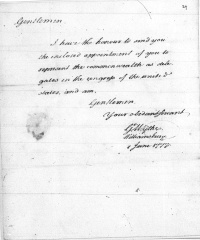 29
Gentlemen
I have the honour to send you
the inclosed appointment of you to
represent the commonwealth as dele-
gates in the congress of the united
states, and am,
Gentlemen
Your obedient servant,
G. Wythe
Williamsburg
June 1777